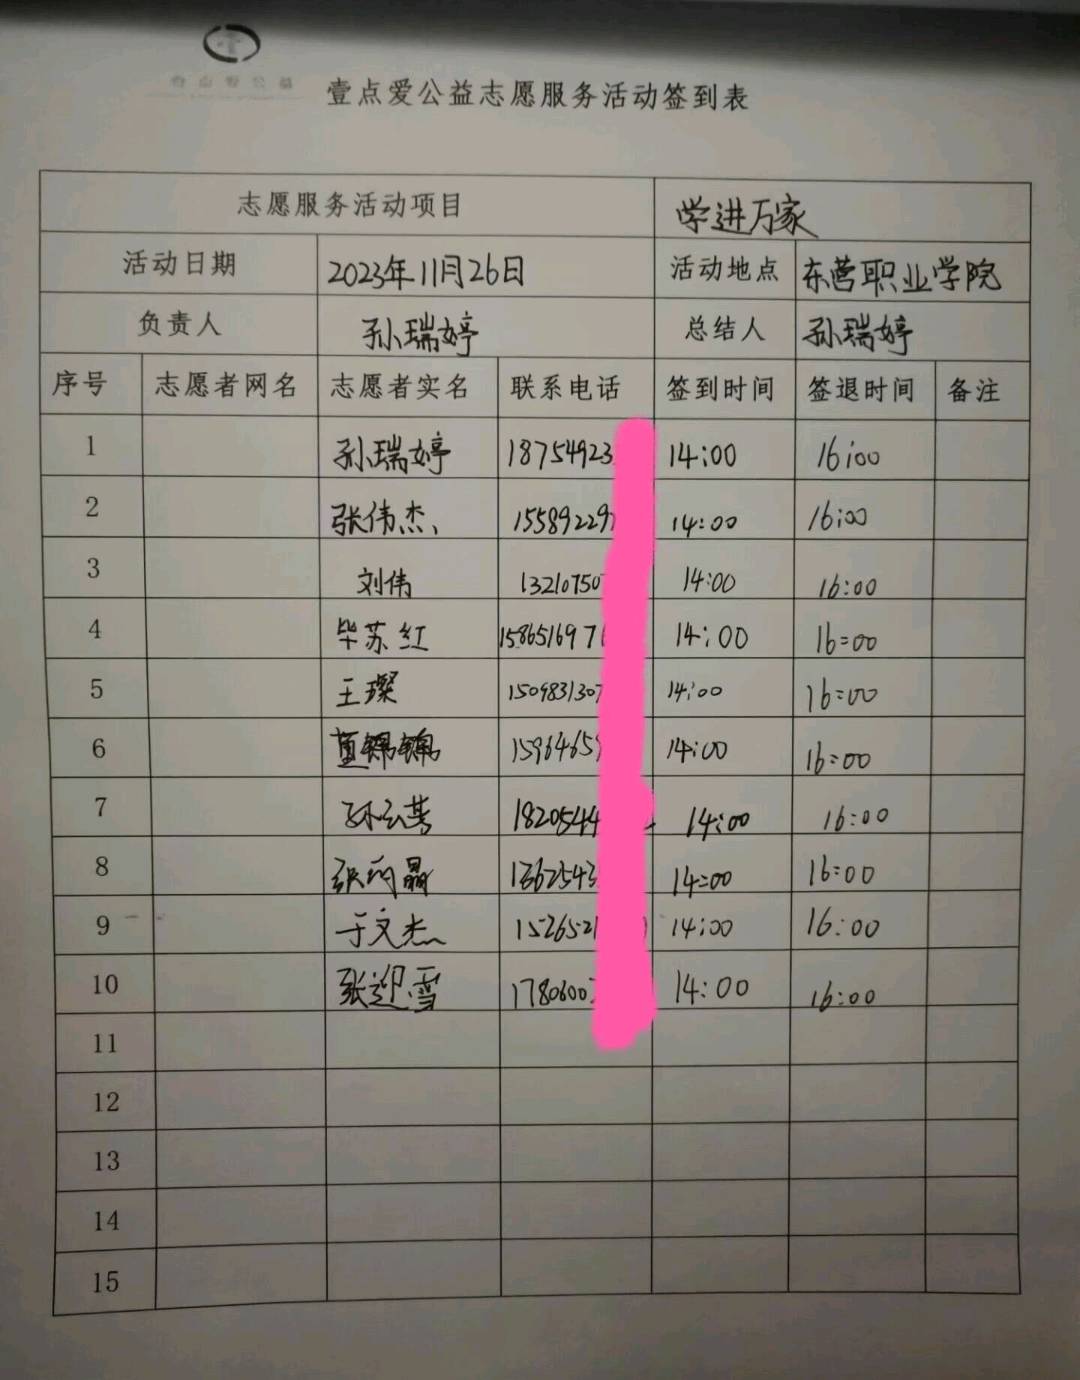 壹点爱公益志愿服务活动签到表
志愿服务活动项目 学进万家
活动日期 2023年11月26日 活动地点 东营职业学院
负责人 孙瑞婷 总结人 孙瑞婷
序号 志愿者网名 志愿者实名 联系电话 签到时间 签退时间 备注
1 孙瑞婷 18754923 14:00 16:00
2 张伟杰 15589229 14:00 16:00
3 刘伟 13210750 14:00 16:00
4 毕苏红 1586516976 14:00 16:00
5 王璨 1509831307 14:00 16:00
6 董锦锦 15964659 14:00 16:00
7 孙云芳 18205444 14:00 16:00
8 14:00 16:00
9 于文杰 1526521 14:00 16:00
10 张迎雪 1780600 14:00 16:00
11
12
13
14
15